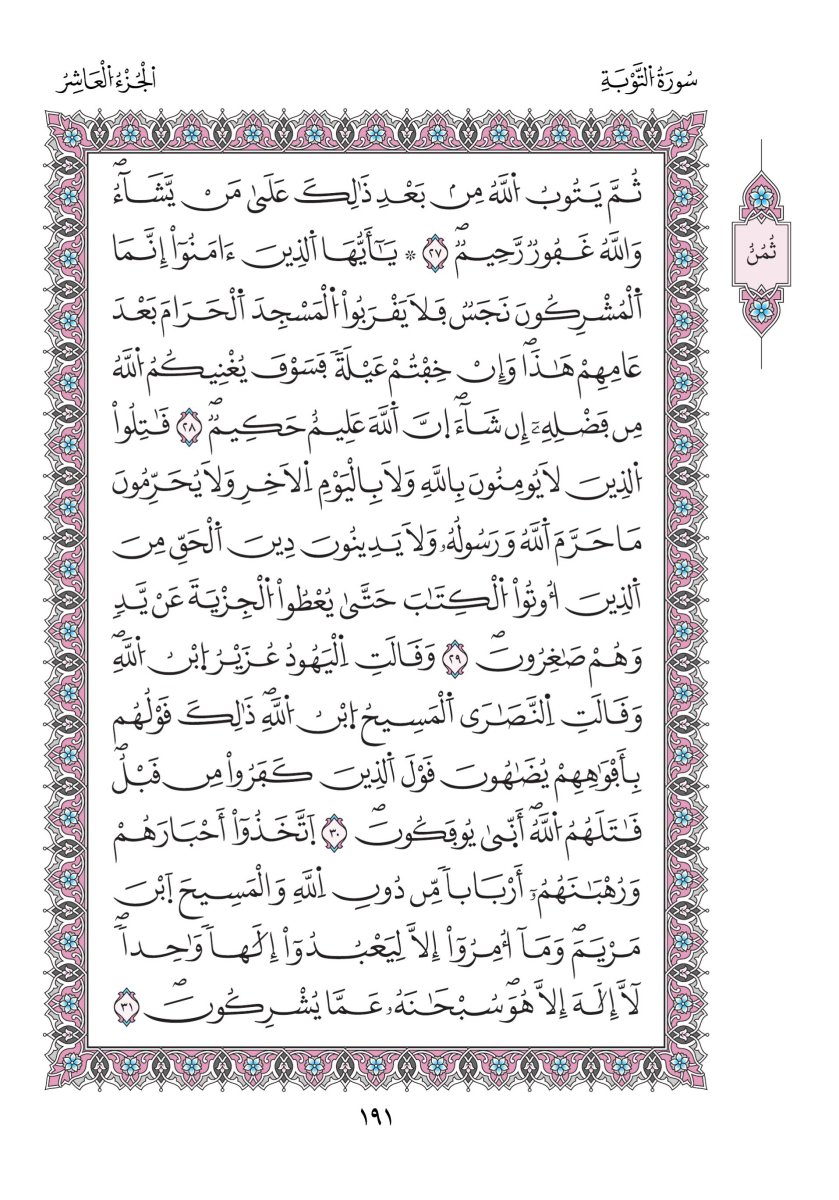 سُورَةُ اُ۬لتَّوْبَةِ
اَ۬لْجُزْءُ اُ۬لْعَاشِرُ
ثُمَّ يَتُوبُ اُ۬للَّهُ مِنۢ بَعْدِ ذَٰلِكَ عَلَىٰ مَنْ يَّشَآءُۖ
وَاللَّهُ غَفُورٞ رَّحِيمٞۖ ٢٧ ۞ يَـٰٓأَيُّهَا اَ۬لذِينَ ءَامَنُوٓاْ إِنَّمَا
اَ۬لْمُشْرِكُونَ نَجَسٞ فَلَا يَقْرَبُواْ اُ۬لْمَسْجِدَ اَ۬لْحَرَامَ بَعْدَ
عَامِهِمْ هَٰذَاۖ وَإِنْ خِفْتُمْ عَيْلَةٗ فَسَوْفَ يُغْنِيكُمُ اُ۬للَّهُ
مِن فَضْلِهِۦٓ إِن شَآءَۖ اِ۪نَّ اَ۬للَّهَ عَلِيمٌ حَكِيمٞۖ ٢٨ قَٰتِلُواْ
اُ۬لذِينَ لَا يُومِنُونَ بِاللَّهِ وَلَا بِالْيَوْمِ اِ۬لَاخِرِ وَلَا يُحَرِّمُونَ
مَا حَرَّمَ اَ۬للَّهُ وَرَسُولُهُۥ وَلَا يَدِينُونَ دِينَ اَ۬لْحَقِّ مِنَ
اَ۬لذِينَ أُوتُواْ اُ۬لْكِتَٰبَ حَتَّىٰ يُعْطُواْ اُ۬لْجِزْيَةَ عَنْ يَّدٖ
وَهُمْ صَٰغِرُونَۖ ٢٩ وَقَالَتِ اِ۬لْيَهُودُ عُزَيْرُ اُ۪بْنُ اُ۬للَّهِۖ
وَقَالَتِ اِ۬لنَّصَٰرَى اَ۬لْمَسِيحُ اُ۪بْنُ اُ۬للَّهِۖ ذَٰلِكَ قَوْلُهُم
بِأَفْوَٰهِهِمْ يُضَٰهُونَ قَوْلَ اَ۬لذِينَ كَفَرُواْ مِن قَبْلُۖ
قَٰتَلَهُمُ اُ۬للَّهُۖ أَنّ۪ىٰ يُوفَكُونَۖ ٣٠ اَ۪تَّخَذُوٓاْ أَحْبَارَهُمْ
وَرُهْبَٰنَهُمُۥٓ أَرْبَاباٗ مِّن دُونِ اِ۬للَّهِ وَالْمَسِيحَ اَ۪بْنَ
مَرْيَمَۖ وَمَآ أُمِرُوٓاْ إِلَّا لِيَعْبُدُوٓاْ إِلَٰهاٗ وَٰحِداٗۖ
لَّآ إِلَٰهَ إِلَّا هُوَۖ سُبْحَٰنَهُۥ عَمَّا يُشْرِكُونَۖ ٣١
ثُمُنُ
١٩١